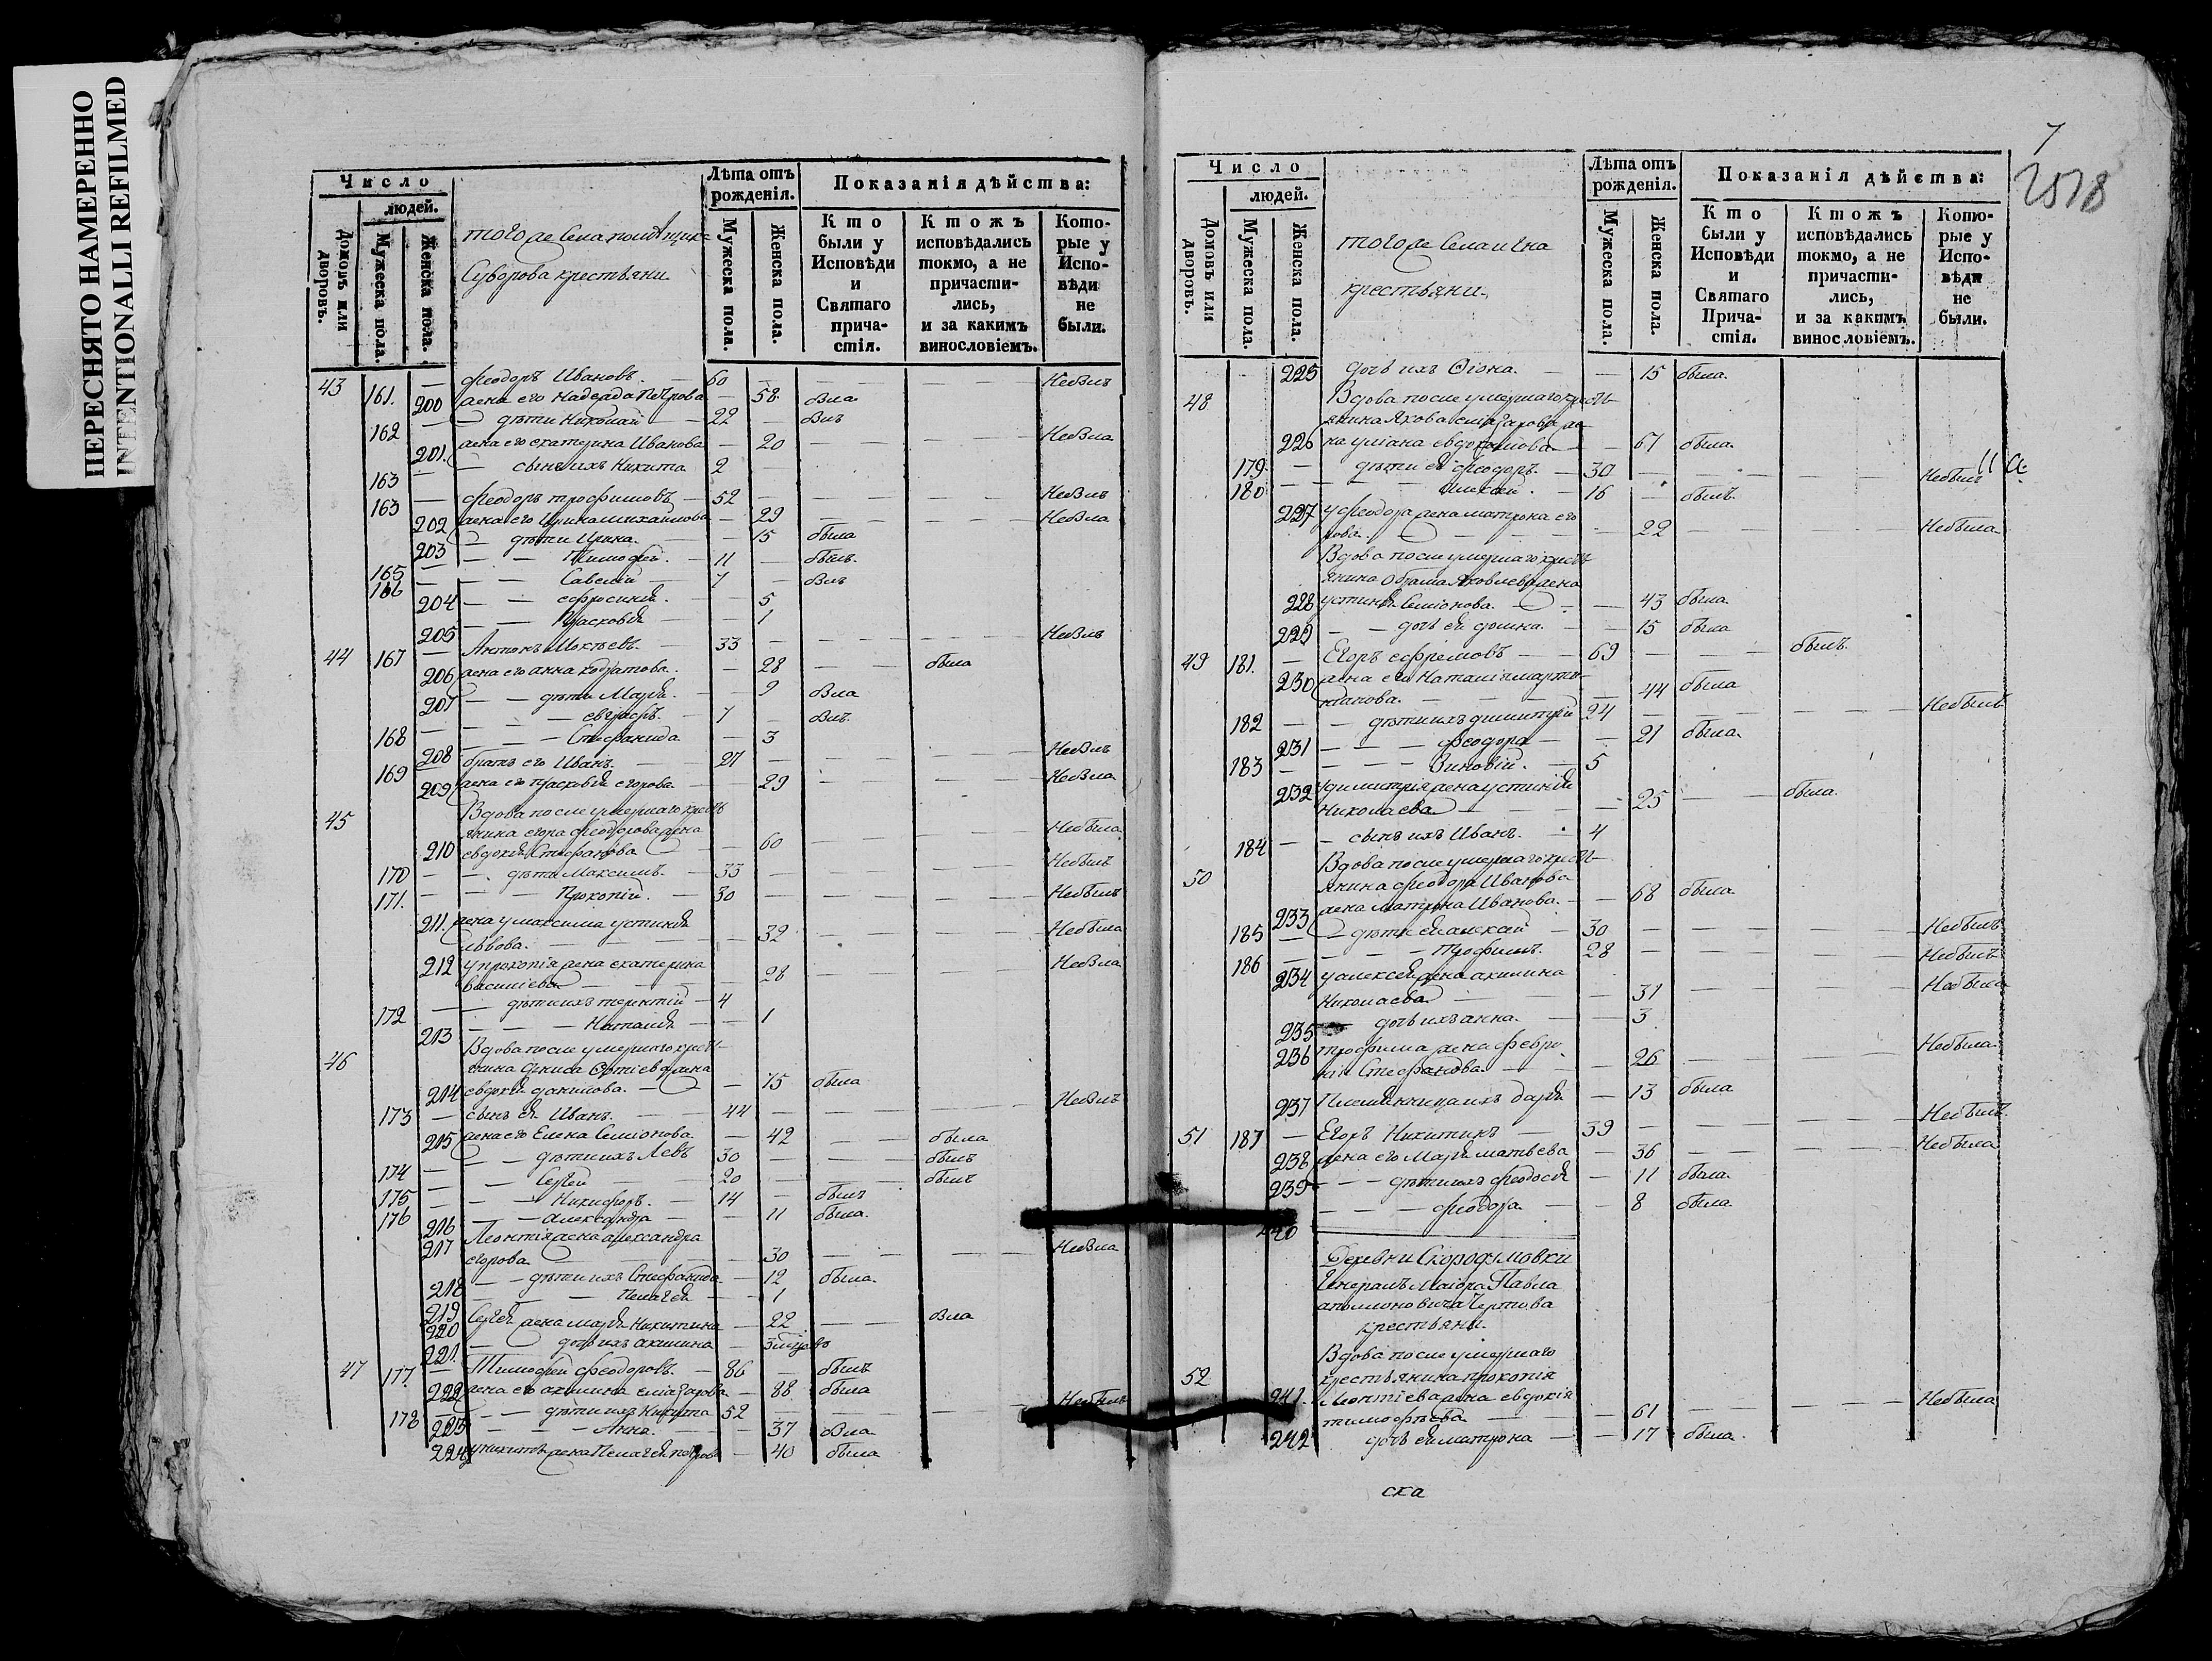 ПЕРЕСНЯТО НАМЕРЕННО
INTENTIONALLI REFILMED
Число
людей.
Домовъ или дворовъ.
Мужеска пола.
Женска пола.
тогоже села помѣщика
Суворова крестьяни
Лѣта отъ рожденія.
Мужеска пола.
Женска пола.
Показанія дѣйства:
Кто были у Исповѣди и Святаго причастія.
Ктожъ исповѣдались токмо, а не причастились, и за какимъ винословіемъ.
Которые у Исповѣди не были.
43 161. — Феодоръ Ивановъ. — 60 — Небылъ
200 жена его Надежда Петрова — 58 была
162 — дѣти Николай — 22 — былъ
201. жена его екатерина Иванова — 20 — Небыла
163 — сынъ ихъ Никита 2
163 — Феодоръ трофимовъ — 52 — Небылъ
202 жена его Ирина михайлова — 29 — Небыла
203 — дѣти Ирина. — 15 была
165 — Тимофей. — 11 — былъ.
166 — Савелій — 7 — былъ
204 — ефросинія. — 5
205 — Прасковія — 1
44 167 — Антонъ Мокѣевъ — 33 — Небылъ
206 жена его анна кодратова. — 28 — была
207 — дѣти Марія. — 9 была
168 — евграфъ. — 7 — былъ.
208 — Стефанида — 3
169 — братъ его Иванъ. — 27 — Небылъ
209 жена его прасковія егорова — 29 — Небыла
45 Вдова после умершаго кресть
янина егора феодорова жена
210 евдокія Стефанова — 60 — Небыла
170 — дѣти Максимъ. — 33 — Небылъ
171. — Прокопій. — 30 — Небылъ
211. жена у максима устинія
львова. — 32 — Небыла
212 у прокопія жена екатерина
василіева — 28 — Небыла
172 — дѣти ихъ терентій — 4
213 — Наталія — 1
46 Вдова после умершаго кресть
янина
214 евдокія данилова. — 75 была
173 — сынъ ея Иванъ. — 44 — Небылъ
215 жена его Елена Семіонова. — 42 — была
174 — дѣти ихъ Левъ 30 — былъ
175 — Сергей — 20 — былъ
176 — Никифоръ. — 14 — былъ
216 — александра — 11 была.
217 Леонтія жена александра
егорова — 30 — Небыла
218 — дѣти ихъ Стефанида — 12 была.
219 — Пелагея — 1
220 Сергѣя жена марія Никитина — 22 — была
221. — дочь ихъ акилина — 3
47 177. — Тимофей феодоровъ. — 86 — былъ
222 жена его акилина елиазарова — 88 была
178 — дѣти ихъ Никита 52 — Небылъ
223 — Анна. — 37 была
224 у никиты жена Пелагея петрова — 40 была
7
2518
Число
людей.
Домовъ или дворовъ.
Мужеска пола.
Женска пола.
тогоже Села
крестьяни.
Лѣта отъ рожденія.
Мужеска пола.
Женска пола.
Показанія дѣйства:
Кто были у Исповѣди и Святаго Причастія.
Ктожъ исповѣдались токмо, а не причастились, и за какимъ винословіемъ.
Которые у Исповѣди не были.
225 дочь ихъ — 15 была.
48 Вдова после умершаго кресть
янина Якова елиазарова же
226 на уліана евдокимова — 67 была
179. — дѣти ея феодоръ. — 30 — Небылъ
180 — — 16 — былъ.
227 у феодора жена матрона его
рова. — 22 — Небыла
Вдова после умершаго кресть
янина Яковлева жена
228 устинія Семіонова. — 43 была.
229 — дочь ея домна. — 15 была
49 181. — Егоръ ефремовъ — 69 — былъ.
230 жена его Наталія марти
нианова. — 44 была
182 — дѣти ихъ димитрій 24 — Небылъ
231 — феодора — 21 была.
183 — Зиновій. — 5
232 у димитрія жена устинія
Николаева — 25 — была.
184 — сынъ ихъ Иванъ. — 4
50 Вдова после умершаго кресть
янина феодора Иванова
233 жена матрона Иванова. — 68 была
185 — дѣти ея — 30 — Небылъ
186 — Трофимъ. 28 — Небылъ
234 у алексея жена акилина
Николаева — 31 — Небыла
235 дочь ихъ анна. — 3
236 трофима жена февро
нія Стефанова — 26 — Небыла
237 Племянница ихъ дарія — 13 была
51 187 — Егоръ Никитинъ — 39 — Небылъ.
238 жена его Марія матвѣева — 36 — Небыла
239 — дѣти ихъ феодосія — 11 была.
240 — феодора — 8 была
Деревни Скородумовки
Генералъ Маіора Павла
аполлоновича
крестьяни.
52 Вдова после умершаго
крестьянина прокопія
241. Леонтіева жена евдокія
тимофѣева — 61 — Небыла
242 дочь ея матрона — 17 была.
ска